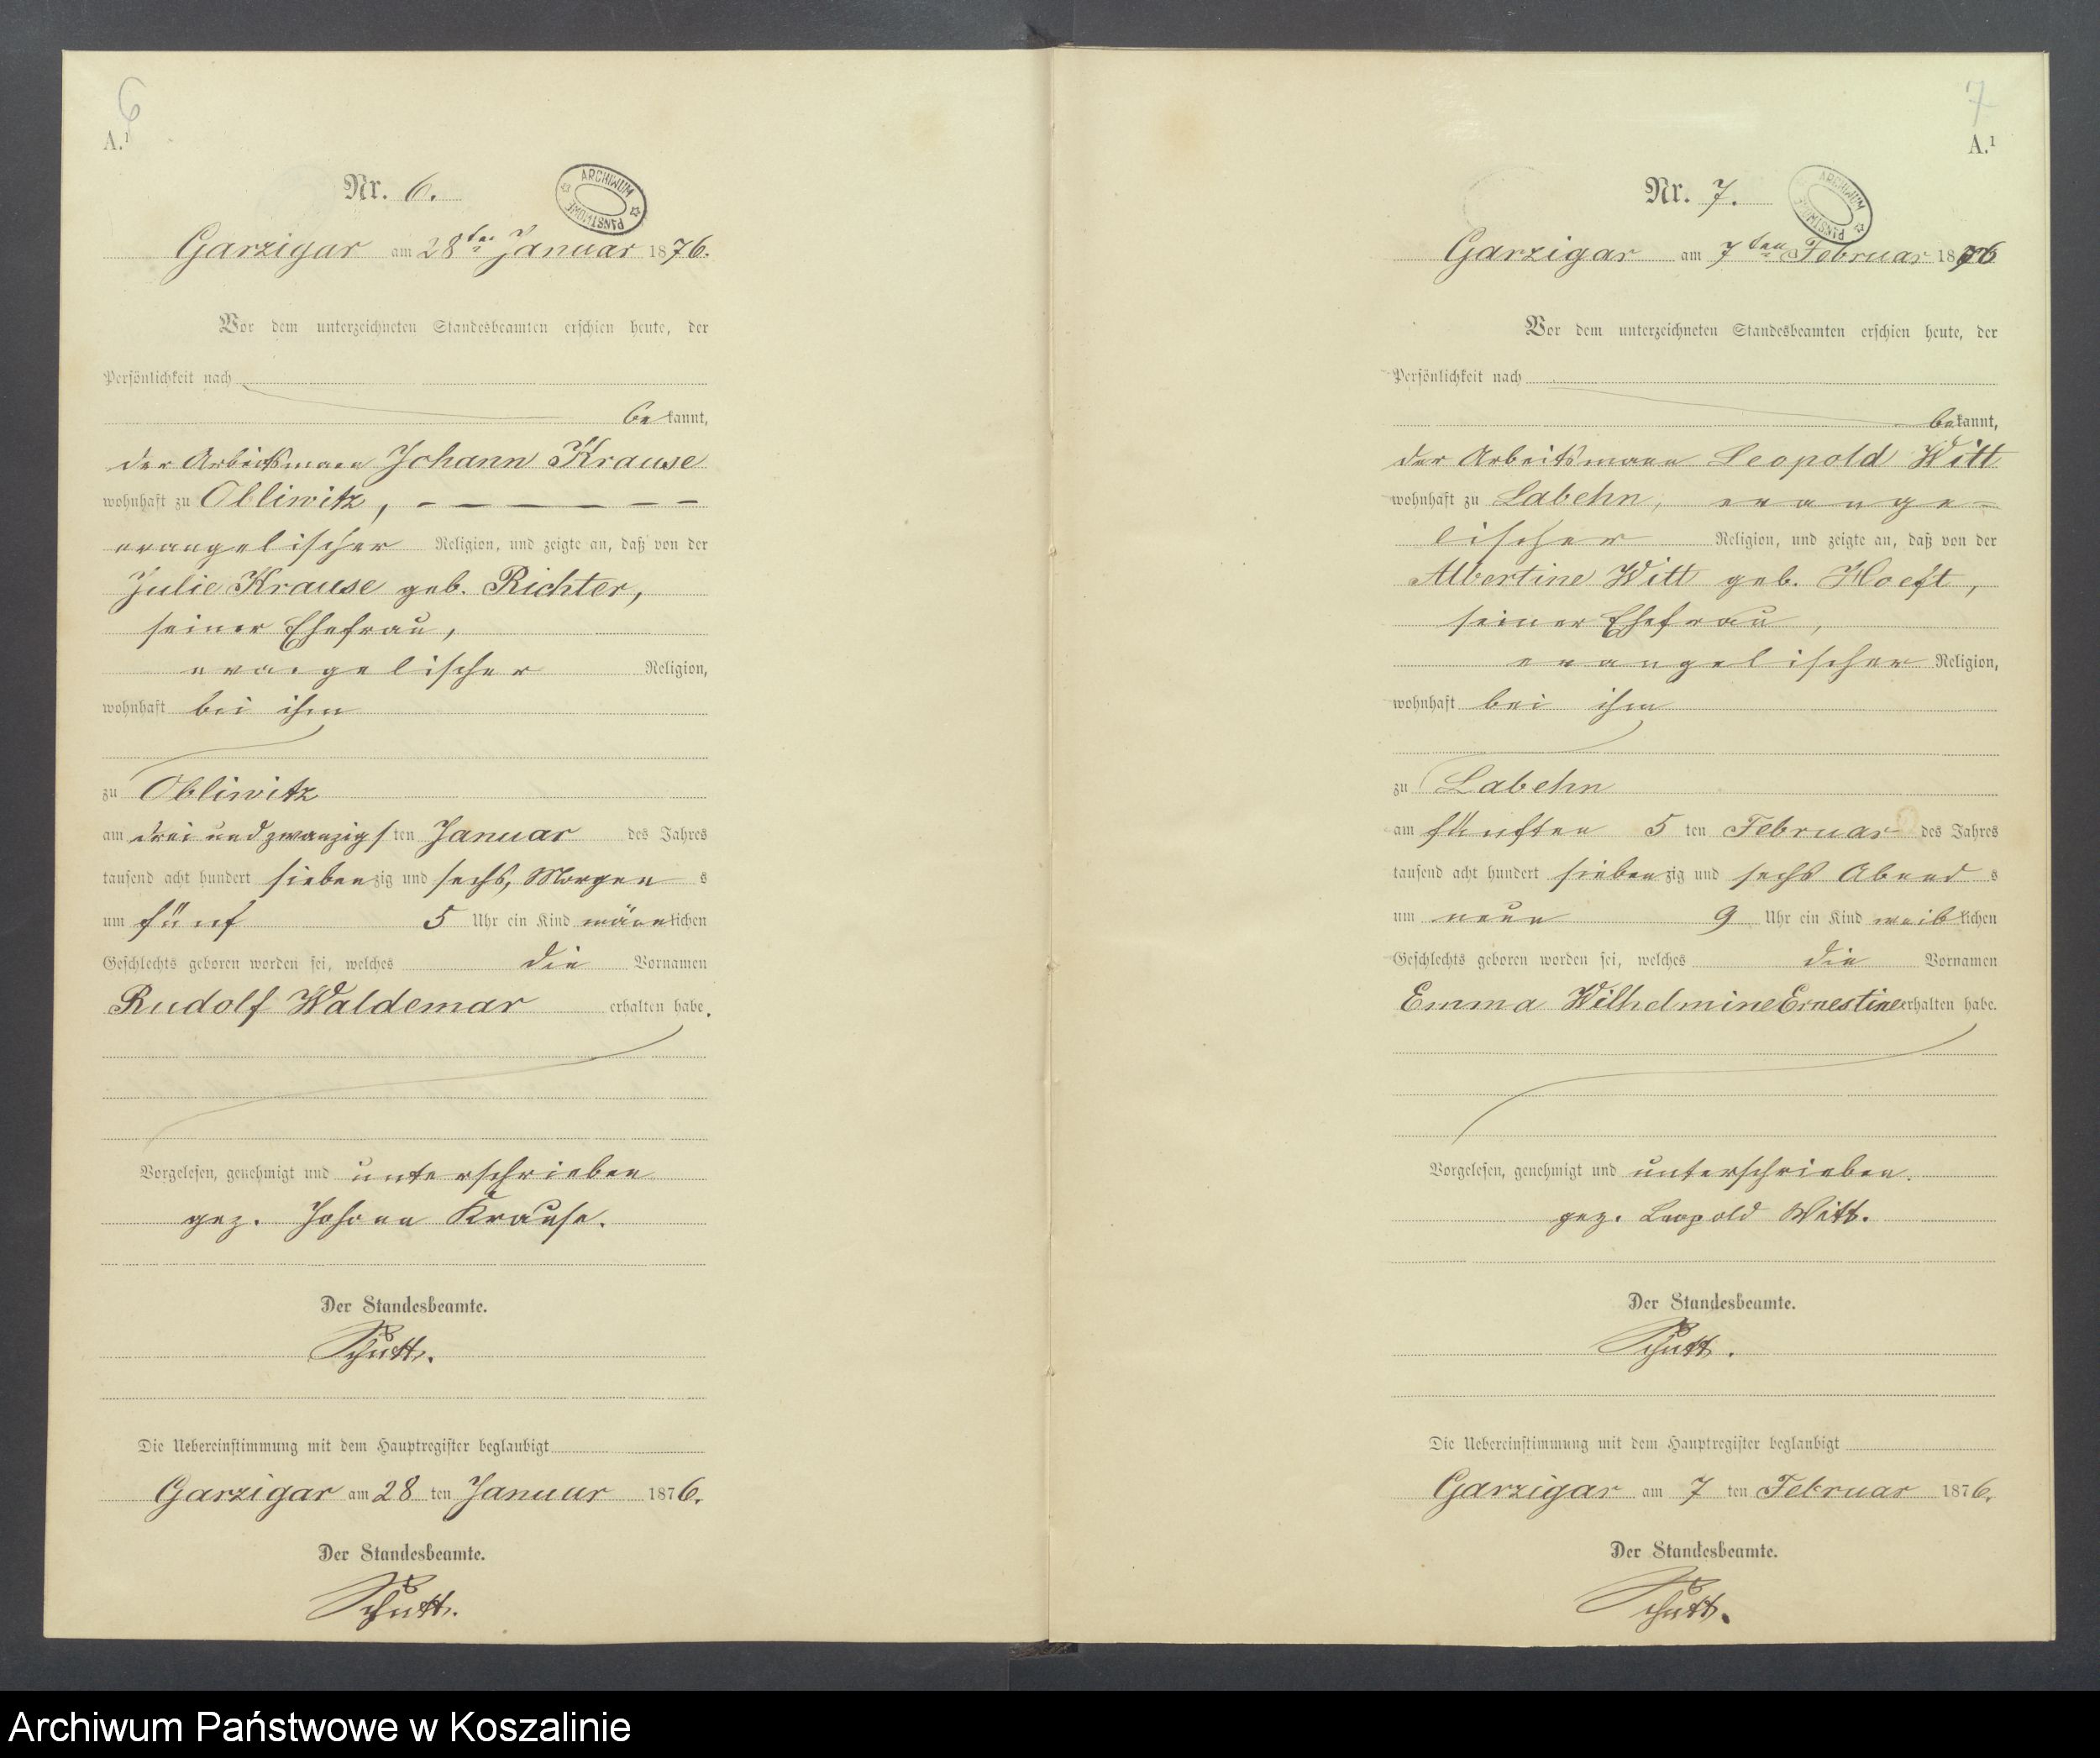 6
A.¹
Nr. 6.
ARCHIWUM PAŃSTWOWE
Garzigar am 28ten Januar 1876.
Vor dem unterzeichneten Standesbeamten erschien heute, der
Persönlichkeit nach
bekannt,
der Arbeitsmann Johann Krause
wohnhaft zu Obliwitz,
evangelischer Religion, und zeigte an, daß von der
Julie Krause geb. Richter,
seiner Ehefrau,
evangelischer Religion,
wohnhaft bei ihm
zu Obliwitz
am drei und zwanzigsten Januar des Jahres
tausend acht hundert siebenzig und sechs, Morgens
um fünf 5 Uhr ein Kind männlichen
Geschlechts geboren worden sei, welches die Vornamen
Rudolf Waldemar erhalten habe.
Vorgelesen, genehmigt und unterschrieben
gez. Johann Krause.
Der Standesbeamte.
Schütt.
Die Uebereinstimmung mit dem Hauptregister beglaubigt
Garzigar am 28 ten Januar 1876.
Der Standesbeamte.
Schütt.
7
A.¹
Nr. 7.
ARCHIWUM PAŃSTWOWE
Garzigar am 7ten Februar 1876
Vor dem unterzeichneten Standesbeamten erschien heute, der
Persönlichkeit nach
bekannt,
der Arbeitsmann Leopold Witt
wohnhaft zu Labehn, evange-
lischer Religion, und zeigte an, daß von der
Albertine Witt geb. Hoeft,
seiner Ehefrau,
evangelischer Religion,
wohnhaft bei ihm
zu Labehn
am fünften 5 ten Februar des Jahres
tausend acht hundert siebenzig und sechs Abends
um neun 9 Uhr ein Kind weiblichen
Geschlechts geboren worden sei, welches die Vornamen
Emma Wilhelmine Ernestine erhalten habe.
Vorgelesen, genehmigt und unterschrieben.
gez. Leopold Witt.
Der Standesbeamte.
Schütt.
Die Uebereinstimmung mit dem Hauptregister beglaubigt
Garzigar am 7 ten Februar 1876.
Der Standesbeamte.
Schütt.
Archiwum Państwowe w Koszalinie